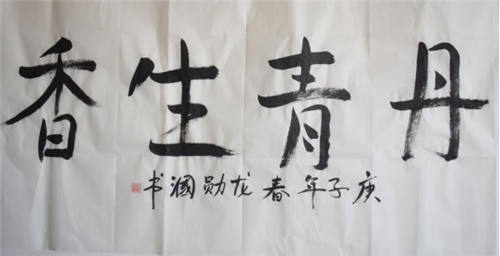 丹青生香
庚子年春龙勋书